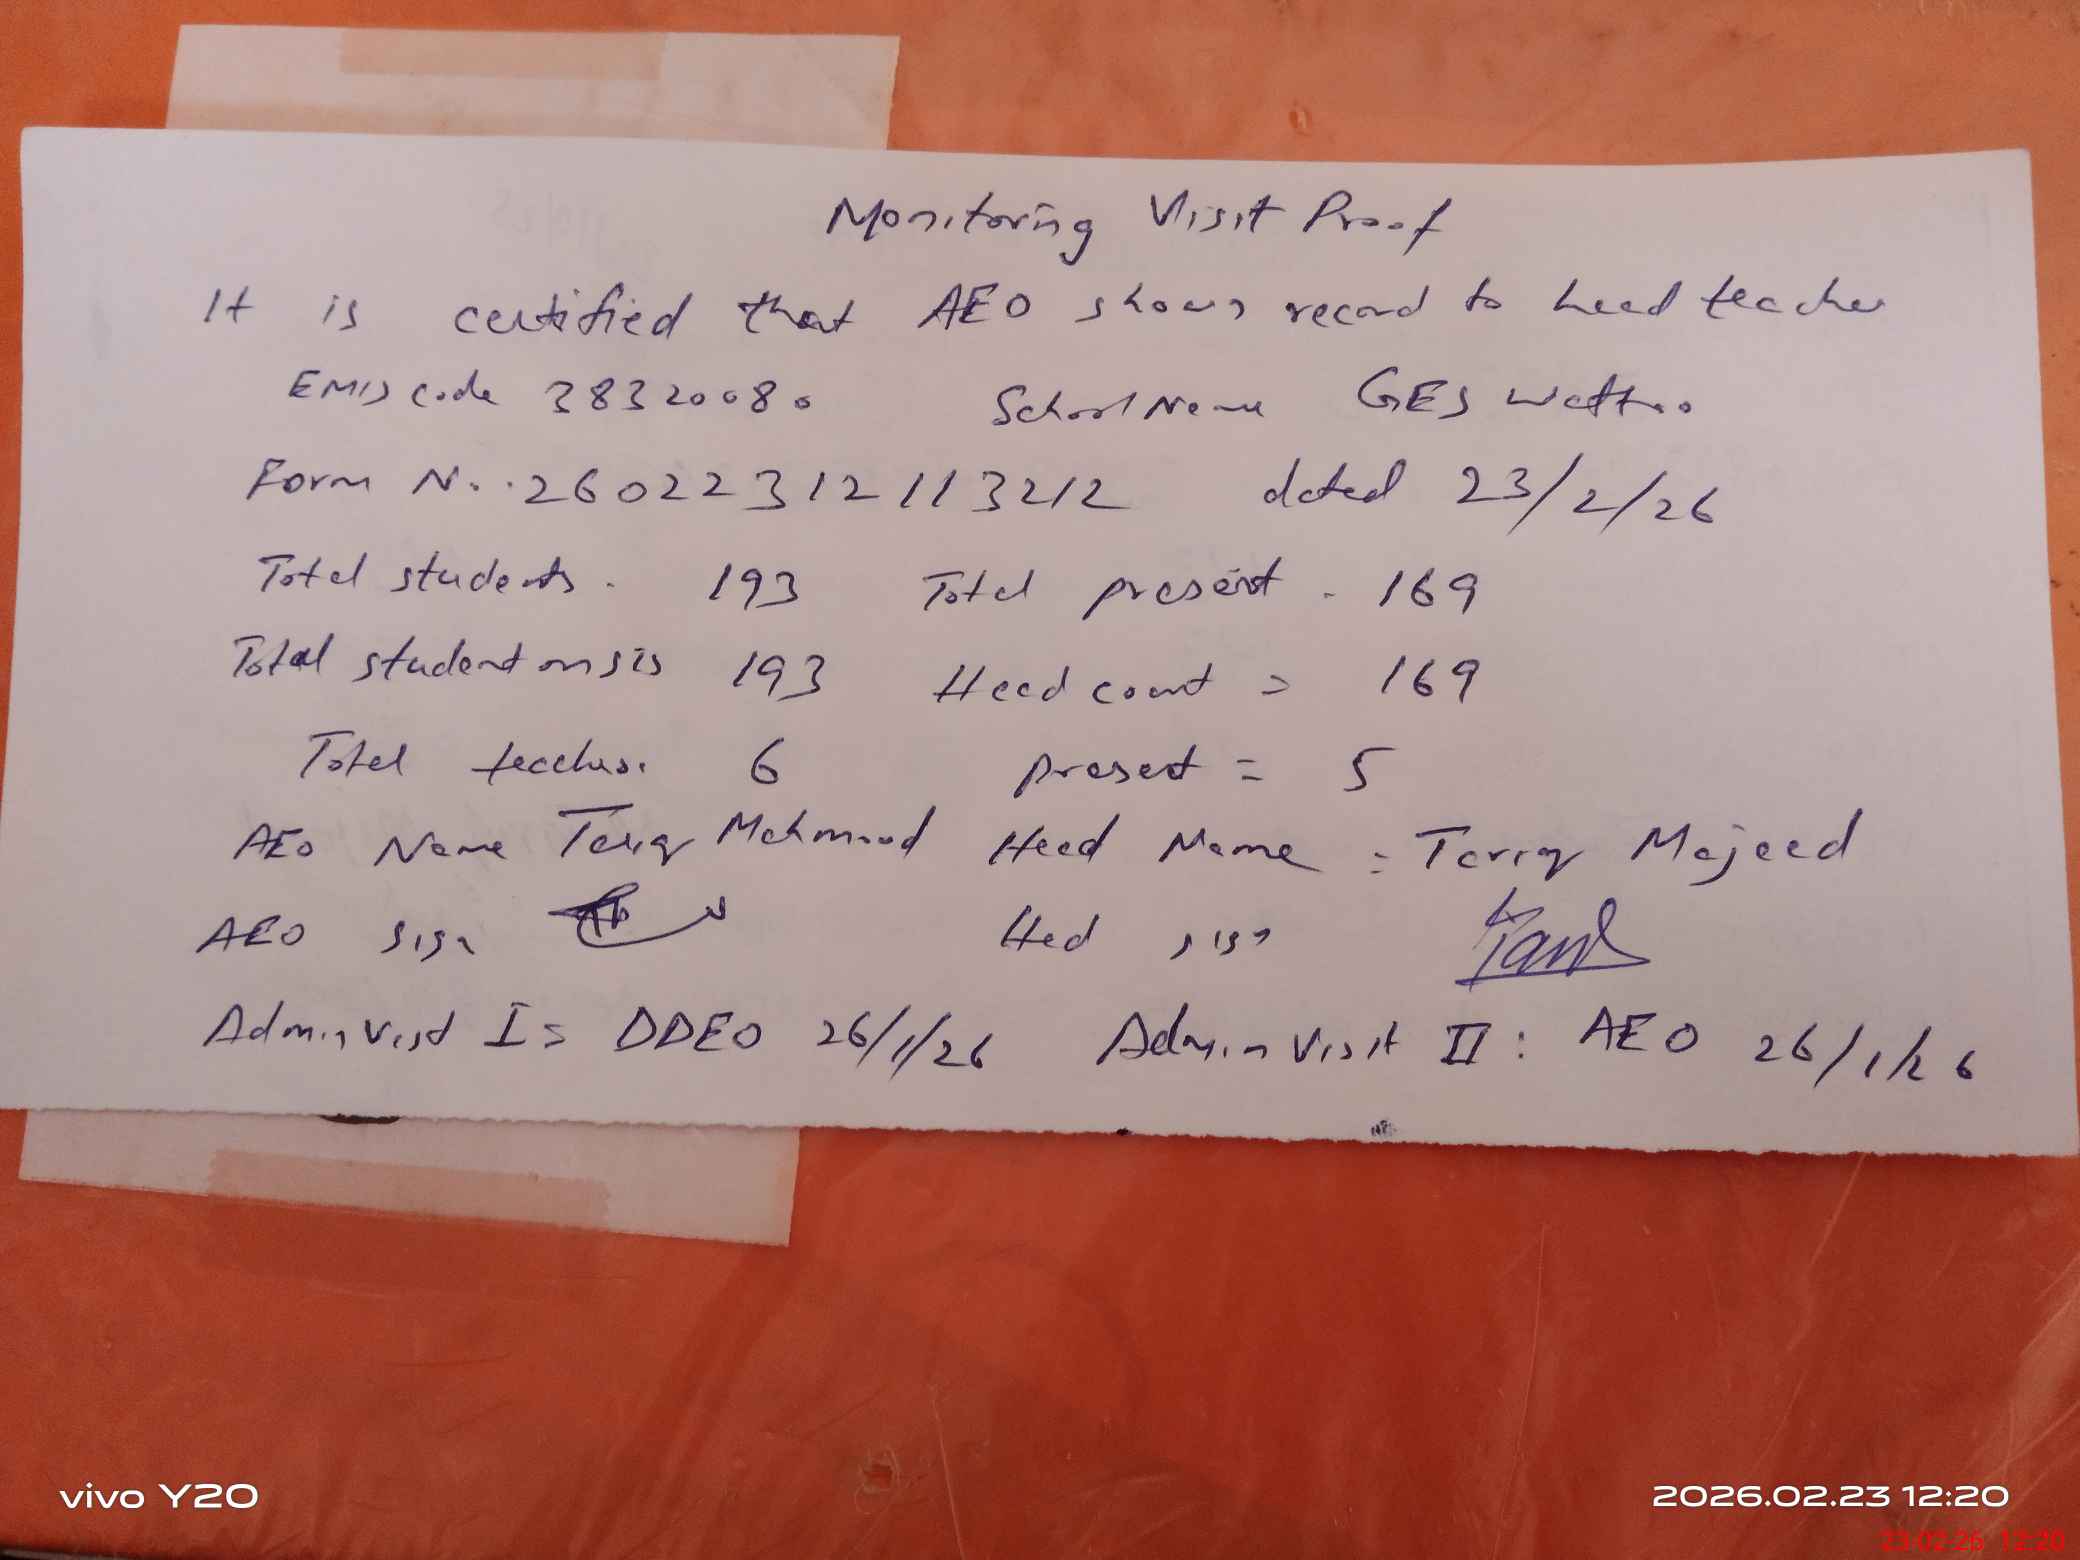 Monitoring Visit Proof
It is certified that AEO shows record to head teacher
EMIS code 38320080 School Name GES
Form No. 26022312113212 dated 23/2/26
Total students. 193 Total present. 169
Total student on sis 193 Head count = 169
Total teachers. 6 present = 5
AEO Name Tariq Mehmood Head Name = Tariq Majeed
AEO sign Hed sign
Admin Visit I = DDEO 26/1/26 Admin Visit II : AEO 26/1/26
vivo Y20
2026.02.23 12:20
23-02-26 12:20